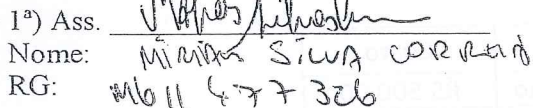 1ª) Ass.
Nome: MIRIAN SILVA CORREIA
RG: MG 11 477 326